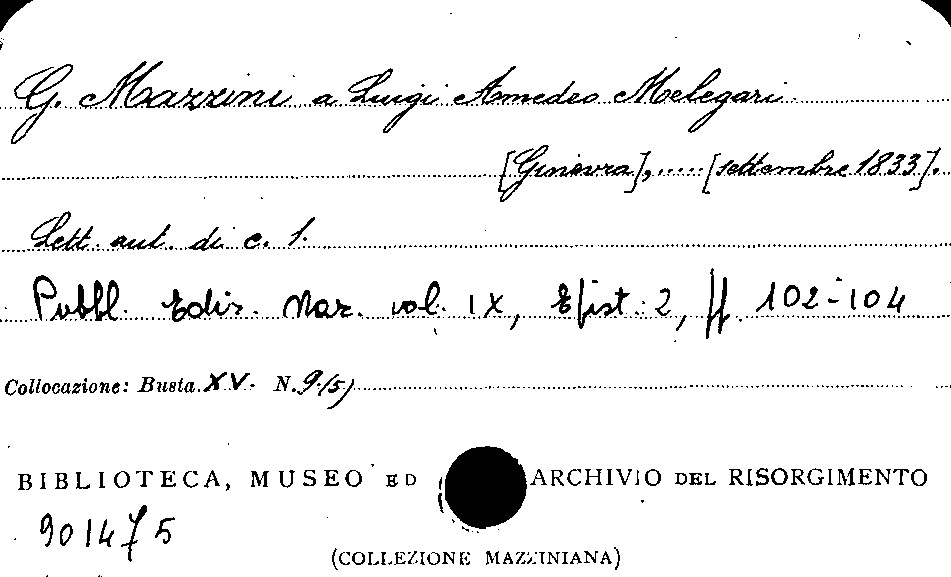 G. Mazzini a Luigi Amedeo Melegari.
[Ginevra],..... [settembre 1833].
Lett. aut. di c. 1.
Pubbl. Ediz. Naz. vol. IX, Epist. 2, pp. 102-104
Collocazione: Busta XV. N. 9/(5)
BIBLIOTECA, MUSEO ED ARCHIVIO DEL RISORGIMENTO
901475
(COLLEZIONE MAZZINIANA)